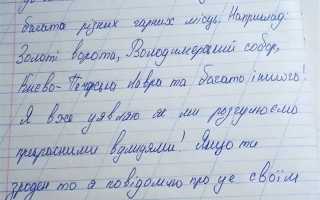 багата різних гарних місць. Наприклад:
Золоті ворота, Володимерский собор,
Києво-Печерська Лавра та багато іншого!
Я вже уявляю як ми розгулюємо
прекрасними вулицями! Якщо ти
згоден то я повідомлю про це своїм